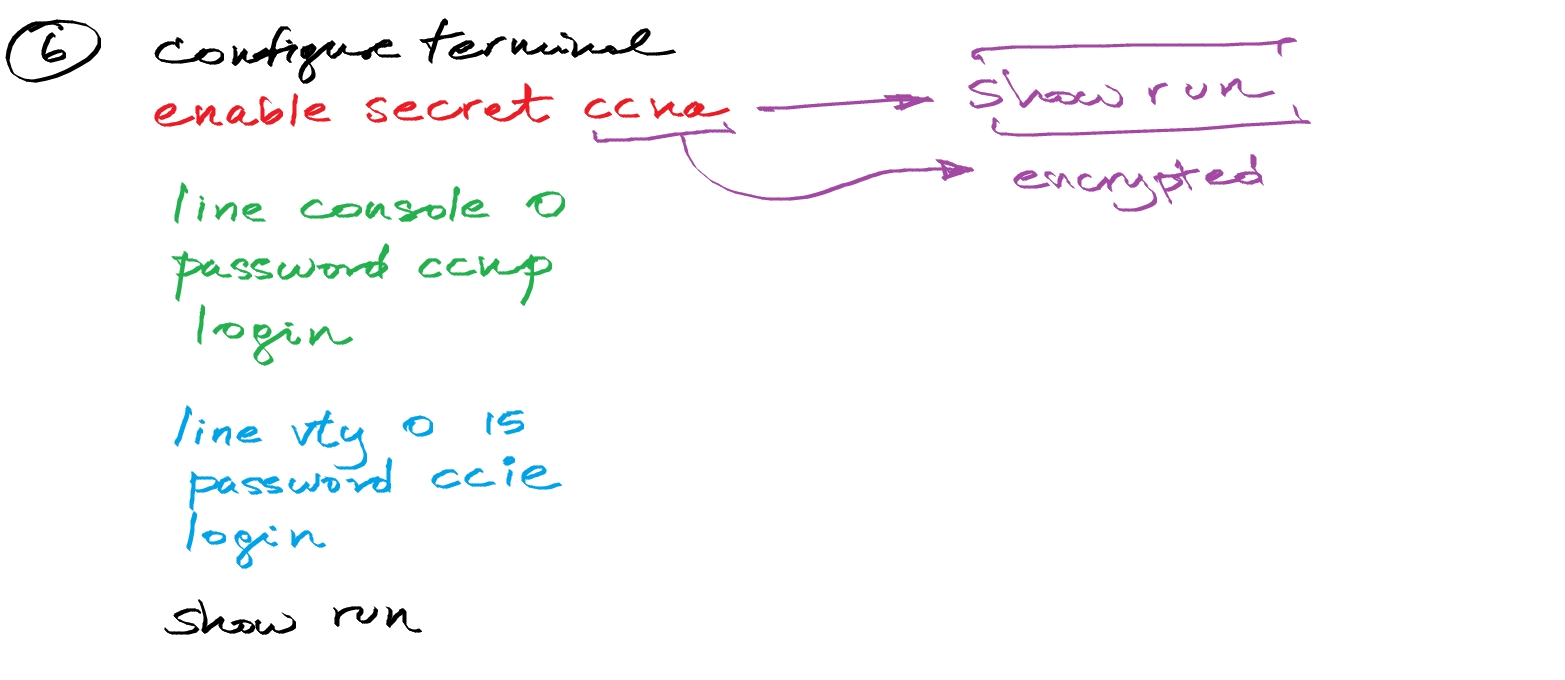 6 configure terminal
enable secret ccna
show run
encrypted
line console 0
password ccnp
login
line vty 0 15
password ccie
login
show run